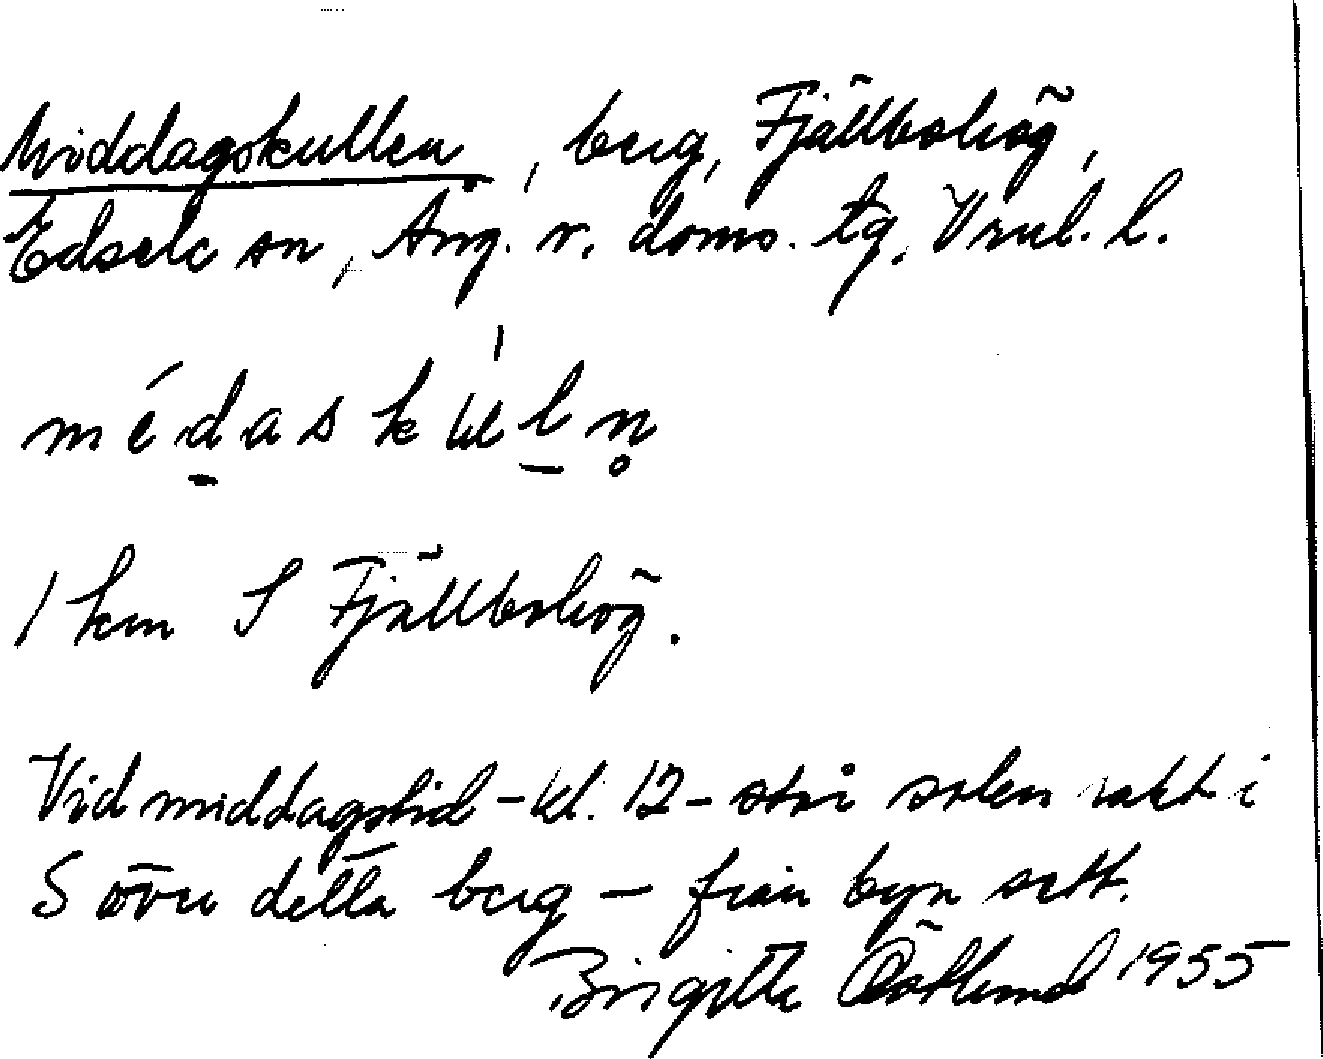 Middagskullen, berg, Fjällbohög,
Edsele sn, Ång. v. doms. tg, Vnrl. l.
médaskuln̥
1 km S Fjällbohög.
Vid middagstid - kl. 12 - står solen rakt i
S över detta berg - från byn sett.
Birgitta Östlund 1955